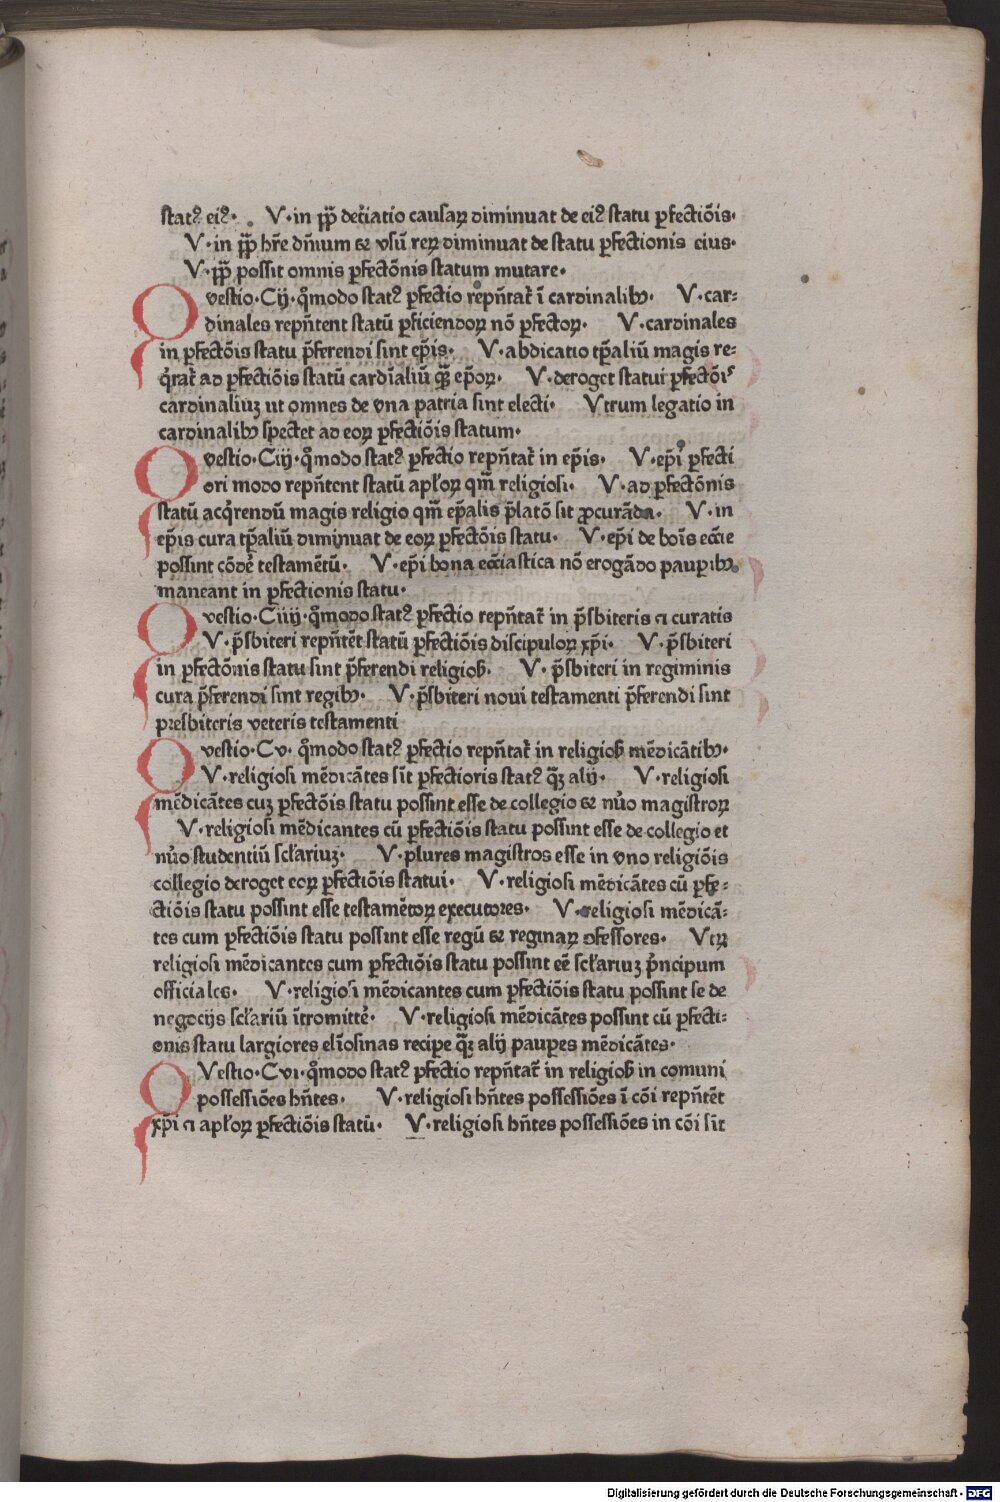 statꝰ eiꝰ· V·in pp̄ det̄iatio causaꝝ diminuat de eiꝰ statu ꝑfectiōis·
V·in pp̄ hr̄e dn̄ium et vsū reꝝ diminuat de statu ꝑfectionis eius·
V·pp̄ possit omnis ꝑfectōnis statum mutare·
Qvestio·Cij·qͦmodo statꝰ ꝑfectio repn̄tat᷑ ī cardinalibꝫ· V·car=
dinales repn̄tent statū ꝑficiendoꝝ nō ꝑfectoꝝ· V·cardinales
in ꝑfectōis statu p̄ferendi sint ep̄is· V·abdicatio tp̄aliū magis re=
qͥrat᷑ ad ꝑfectiōis statū cardīaliū qͣꝫ ep̄oꝝ· V·deroget statui ꝑfectōis
cardinaliuꝫ ut omnes de vna patria sint electi· Vtrum legatio in
cardinalibꝫ spectet ad eoꝝ ꝑfectiōis statum·
Qvestio·Ciij·qͦmodo statꝰ ꝑfectio repn̄tat᷑ in ep̄is· V·ep̄i ꝑfecti
ori modo repn̄tent statū apl̄oꝝ qm̄ religiosi· V·ad ꝑfectōnis
statū acqͥrendū magis religio qm̄ ep̄alis p̄latō sit ꝓcurāda· V·in
ep̄is cura tp̄aliū diminuat de eoꝝ ꝑfectōis statu· V·ep̄i de boīs eccīe
possint cōdeꝛe testamētū· V·ep̄i bona ecc̄iastica nō erogādo pauꝑibꝫ
maneant in ꝑfectionis statu·
Qvestio·Ciiij·qͦmodo statꝰ ꝑfectio repn̄tat᷑ in p̄sbiteris ⁊ curatis
V·p̄sbiteri repn̄tēt statū ꝑfectiōis discipuloꝝ xp̄i· V·p̄sbiteri
in ꝑfectōnis statu sint p̄ferendi religioſꝫ· V·p̄sbiteri in regiminis
cura p̄ferendi sint regibꝫ· V·p̄sbiteri noui testamenti p̄ferendi sint
presbiteris veteris testamenti
Qvestio·Cv·qͦmodo statꝰ ꝑfectio repn̄tat᷑ in religioſꝫ mēdicātibꝫ·
V·religiosi mēdicātes sīt ꝑfectioris statꝰ qͣꝫ alij· V·religiosi
mēdicātes cuꝫ ꝑfectōis statu possint esse de collegio et nūo magistroꝝ
V·religiosi mēdicantes cū ꝑfectiōis statu possint esse de collegio et
nūo studentiū scl̄ariuꝫ· V·plures magistros esse in vno religiōis
collegio deroget eoꝝ ꝑfectiōis statui· V·religiosi mēdicātes cū ꝑfe=
ctiōis statu possint esse testamētoꝝ executores· V·religiosi mēdicā=
tes cum ꝑfectiōis statu possint esse regū et reginaꝝ ↄfessores· Vtꝝ
religiosi mēdicantes cum ꝑfectiōis statu possint eē scl̄ariuꝫ pͥncipum
officiales· V·religiosi mēdicantes cum ꝑfectiōis statu possint se de
negocijs scl̄ariū ītromitteꝛe· V·religiosi mēdicātes possint cū ꝑfecti=
onis statu largiores elīosinas reciꝑe qͣꝫ alij pauꝑes mēdicātes·
QVestio·Cvi·qͦmodo statꝰ ꝑfectio repn̄tat᷑ in religioſꝫ in comuni
possessiōes hn̄tes· V·religiosi hn̄tes possessiōes ī cōi repn̄tēt
xp̄i ⁊ apl̄oꝝ ꝑfectiōis statū· V·religiosi hn̄tes possessiōes in cōi sīt
Digitalisierung gefördert durch die Deutsche Forschungsgemeinschaft - DFG